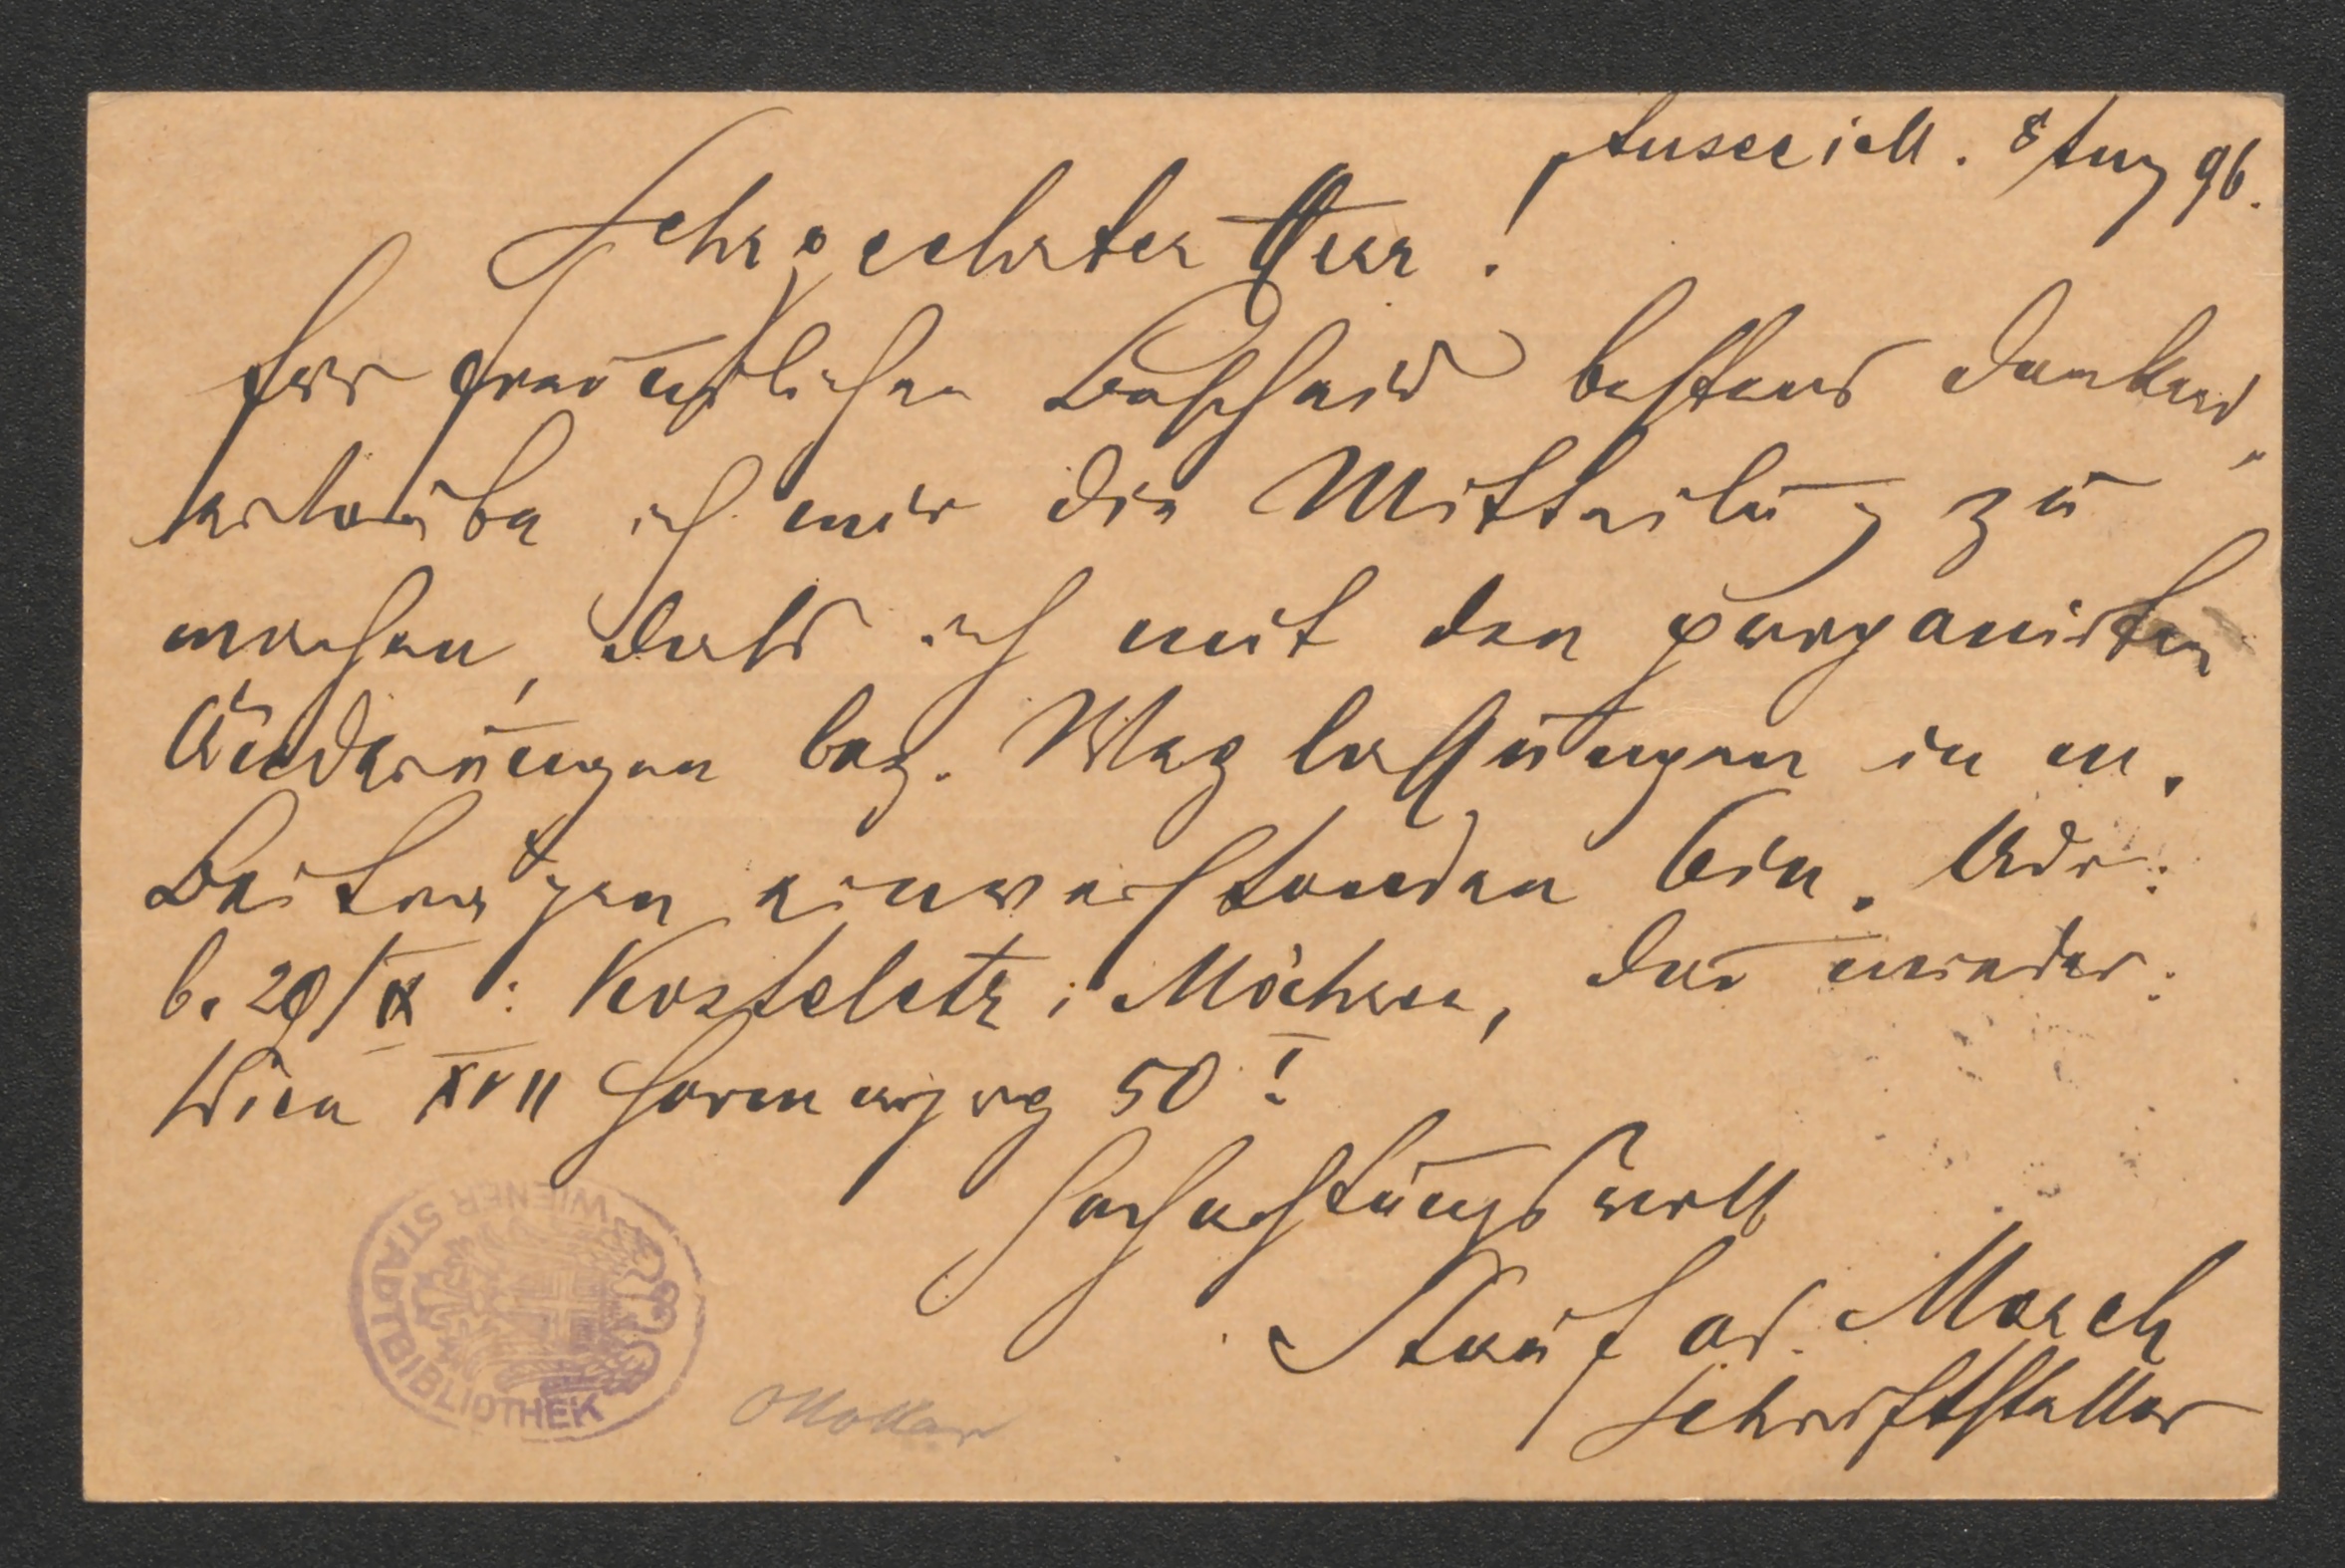 8 Aug 96.
Sehr geehrter Herr!
Für freundlichen Bescheid bestens dankend,
erlaube ich mir die Mittheilung zu
machen, daß ich mit den
Änderungen bez. Weglassungen in m.
Beiträgen einverstanden bin. Adr:
b. 20/IX: Kosteletz i Mähren, dañ wieder:
Wien XVII 50!
Hochachtungsvoll
Stauf v d. March
Schriftsteller
Ottokar
WIENER STADTBIBLIOTHEK